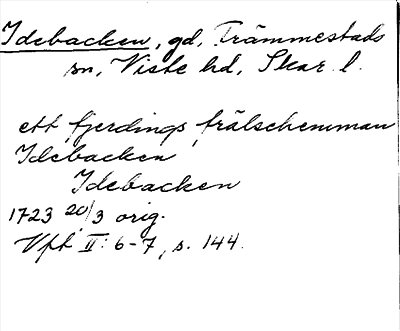 Idebacken, gd, Trämmestads
sn, Viste hd, Skar. l.
ett fjerdings frälschemman
Idebacken
Idebacken
1723 20/3 orig.
Vpt II: 6-7, s. 144.